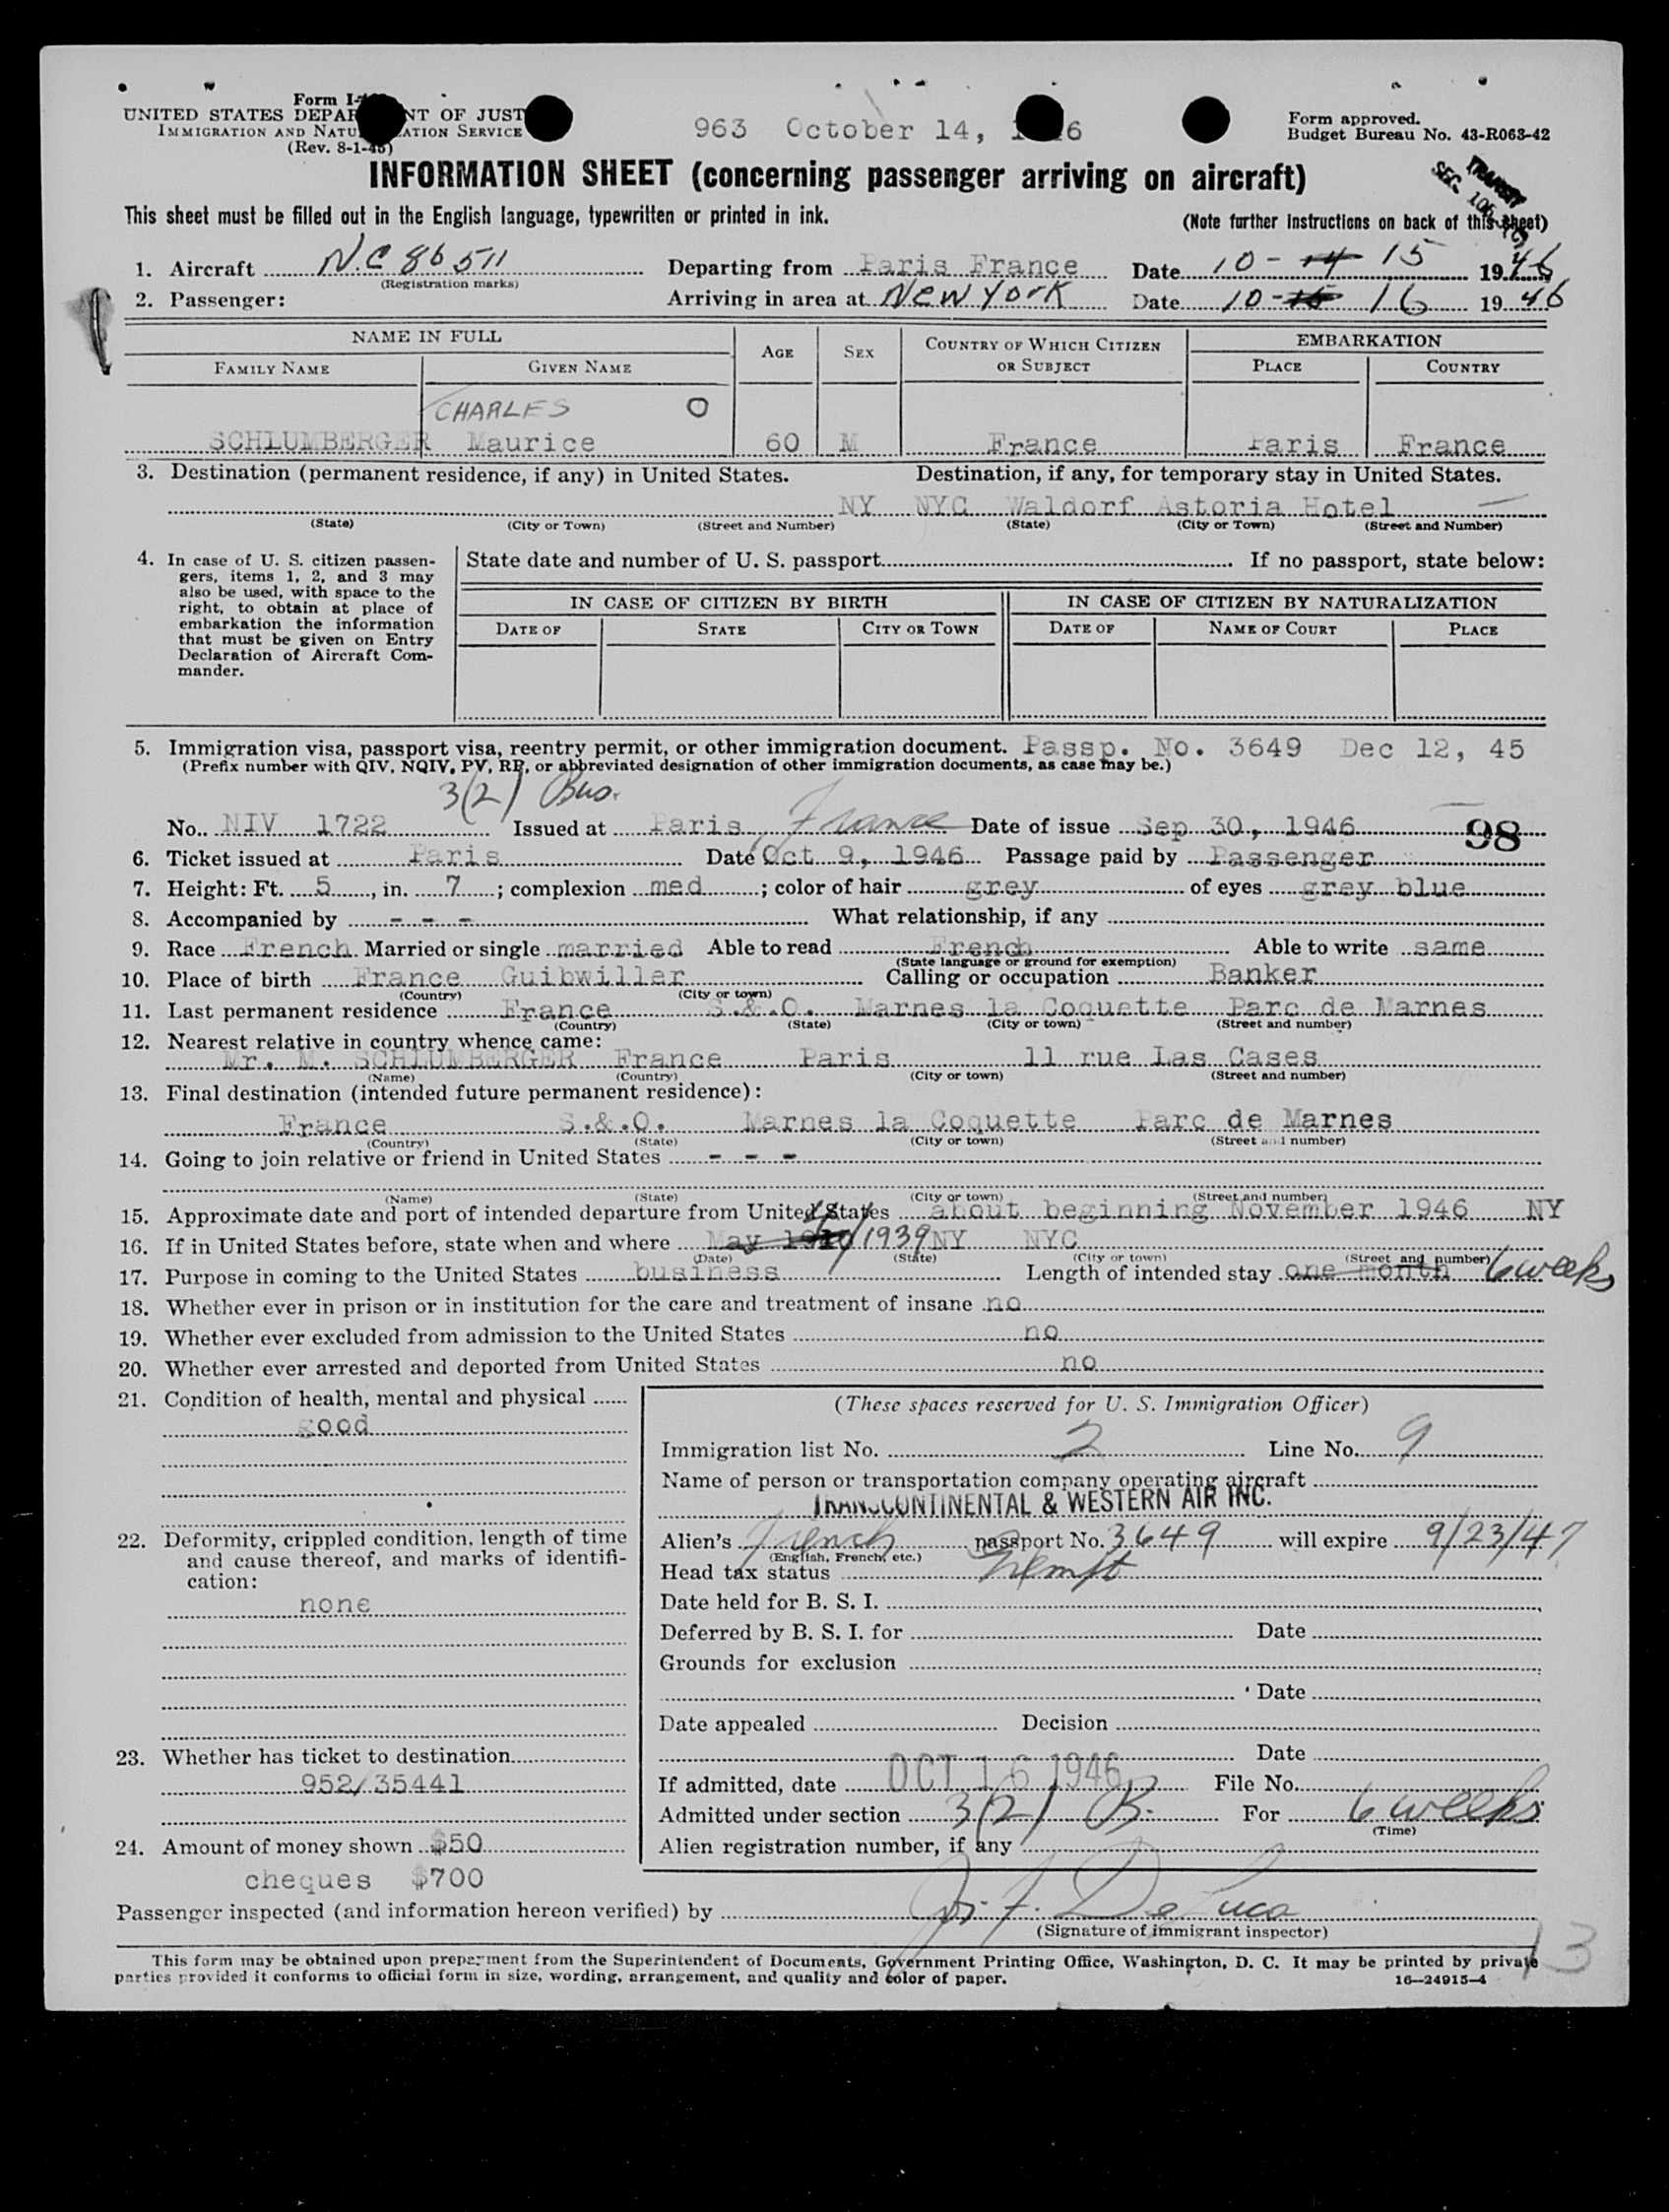 Form I-
UNITED STATES DEPAR NT OF JUST
IMMIGRATION AND NATU ATION SERVICE
(Rev. 8-1-45)
963 October 14, 1 6
Form approved.
Budget Bureau No. 43-R063-42
INFORMATION SHEET (concerning passenger arriving on aircraft)
TRANSIT
SEC. 106
This sheet must be filled out in the English language, typewritten or printed in ink.
(Note further instructions on back of this sheet)
1. Aircraft N.C 86511 Departing from Paris France Date 10- 14 15 1946
(Registration marks)
2. Passenger: Arriving in area at New York Date 10- 15 16 1946
NAME IN FULL AGE SEX COUNTRY OF WHICH CITIZEN OR SUBJECT EMBARKATION
FAMILY NAME GIVEN NAME PLACE COUNTRY
CHARLES O
SCHLUMBERGER Maurice 60 M France Paris France
3. Destination (permanent residence, if any) in United States. Destination, if any, for temporary stay in United States.
NY NYC Waldorf Astoria Hotel
(State) (City or Town) (Street and Number) (State) (City or Town) (Street and Number)
4. In case of U. S. citizen passen-
gers, items 1, 2, and 3 may
also be used, with space to the
right, to obtain at place of
embarkation the information
that must be given on Entry
Declaration of Aircraft Com-
mander.
State date and number of U. S. passport If no passport, state below:
IN CASE OF CITIZEN BY BIRTH IN CASE OF CITIZEN BY NATURALIZATION
DATE OF STATE CITY OR TOWN DATE OF NAME OF COURT PLACE
5. Immigration visa, passport visa, reentry permit, or other immigration document. Passp. No. 3649 Dec 12, 45
(Prefix number with QIV, NQIV, PV, RP, or abbreviated designation of other immigration documents, as case may be.)
3(2) Bus.
No. NIV 1722 Issued at Paris, France Date of issue Sep 30, 1946 98
6. Ticket issued at Paris Date Oct 9, 1946 Passage paid by Passenger
7. Height: Ft. 5, in. 7; complexion med; color of hair grey of eyes grey blue
8. Accompanied by - - - What relationship, if any
9. Race French Married or single married Able to read French Able to write same
(State language or ground for exemption)
10. Place of birth France Guibwiller Calling or occupation Banker
(Country) (City or town)
11. Last permanent residence France S.&.O. Marnes la Coquette Parc de Marnes
(Country) (State) (City or town) (Street and number)
12. Nearest relative in country whence came:
Mr. M. SCHLUMBERGER France Paris 11 rue Las Cases
(Name) (Country) (City or town) (Street and number)
13. Final destination (intended future permanent residence):
France S.&.O. Marnes la Coquette Parc de Marnes
(Country) (State) (City or town) (Street and number)
14. Going to join relative or friend in United States - - -
(Name) (State) (City or town) (Street and number)
15. Approximate date and port of intended departure from United States about beginning November 1946 NY
16. If in United States before, state when and where May 1939 NY NYC
(Date) (State) (City or town) (Street and number)
17. Purpose in coming to the United States business Length of intended stay one month 6 weeks
18. Whether ever in prison or in institution for the care and treatment of insane no
19. Whether ever excluded from admission to the United States no
20. Whether ever arrested and deported from United States no
21. Condition of health, mental and physical
good
22. Deformity, crippled condition, length of time
and cause thereof, and marks of identifi-
cation:
none
23. Whether has ticket to destination
952/35441
24. Amount of money shown $50
cheques $700
(These spaces reserved for U. S. Immigration Officer)
Immigration list No. 2 Line No. 9
Name of person or transportation company operating aircraft
TRANSCONTINENTAL & WESTERN AIR INC.
Alien's French passport No. 3649 will expire 9/23/47
(English, French, etc.)
Head tax status Exempt
Date held for B. S. I.
Deferred by B. S. I. for Date
Grounds for exclusion
Date
Date appealed Decision
Date
If admitted, date OCT 16 1946 File No.
Admitted under section 3(2) B. For 6 weeks
(Time)
Alien registration number, if any
Passenger inspected (and information hereon verified) by Jos. F. De Luca
(Signature of immigrant inspector)
13
This form may be obtained upon prepayment from the Superintendent of Documents, Government Printing Office, Washington, D. C. It may be printed by private
parties provided it conforms to official form in size, wording, arrangement, and quality and color of paper.
16—24915-4